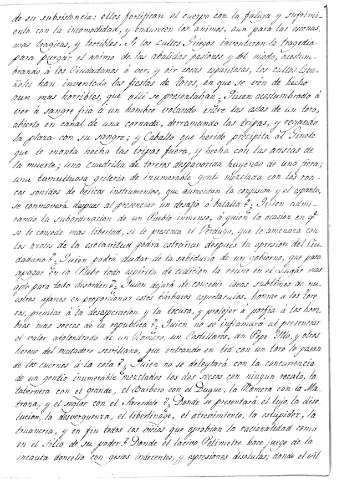 de en substancia: ellos fortifican el cuerpo con la fatiga y sufrimi-
ento con la incomodidad, y endurecen los animos, aun para las escenas
mas tragicas, y terribles. Si los cultos Griegos inventaron la tragedia
para purgar el animo de las abatidas pasiones y del miedo, acostum-
brando à los Ciudadanos à ver, y oir cosas espantosas, los cultos Espa-
ñoles han inventado las fiestas de toros, en que se ven de hecho
aun mas horribles que alli se presentaban. Quien acostumbrado à
ver à sangre fria à un hombre volando entre las astas de un toro,
abierto en canal de una cornada, derramando las tripas, y regando
la plaza con su sangre; y Caballo que herido precipita al Ginete
que le monta hecha las tripas fuera, y lucha con las ansias de
la muerte; una quadrilla de toreros despavorida huyendo de una fiera;
una tumultuosa griteria de inumerable gente mezclada con los ron-
cos sonidos de belicos instrumentos, que aumentan la confusion y el espanto,
se conmoverà despues al presenciar un desafio ò batalla? Quien admi-
rando la subordinacion de un Pueblo inmenso, à quien la ocasion en qe.
se le concede mas libertad, se le presenta el Verdugo, que le amenaza con
los azotes de la esclavitud podra estrañar despues la opresion del Ciu-
dadano? Quien podra dudar de la sabiduria de un gobierno, que para
apagar en la Plebe todo espiritu de sedicion la reune en el Lugar mas
apto para todo desorden? Quien dejarà de concebir ideas sublimes de nu-
estros afanes en proporcionar estos barbaros espectaculos, honrar à los tore-
ros, premiar à la desesperacion y la locura, y proteger à porfia à los hom-
bres mas soeces de la republica? Quien no se inflamarà al presenciar
el valor atolondrado de un Romero, un Costillares, un Pepe Illo, y otros
heroes del matadero sevillano, que entrando en lid con un toro le pasan
de los cuernos à la cola? Quien no se deleytarà con la concurrencia
de un gentio inumerable mezclados los dos sexos con ningun recato, la
tabernera con el grande, el barbero con el Duque, la Ramera con la Ma-
trona, y el seglar con el Sacerdote? Donde se presentarà el lujo, la diso-
lucion, la desverguenza, el libertinage, el atrevimiento, la estupidez, la
truaneria, y en fin todos los vicios que oprobian la racionalidad como
en el Solio de su poder? Donde el lacivo Petimetre hace juego de la
incauta doncella con gestos indecentes, y expresiones disolutas; donde el vil